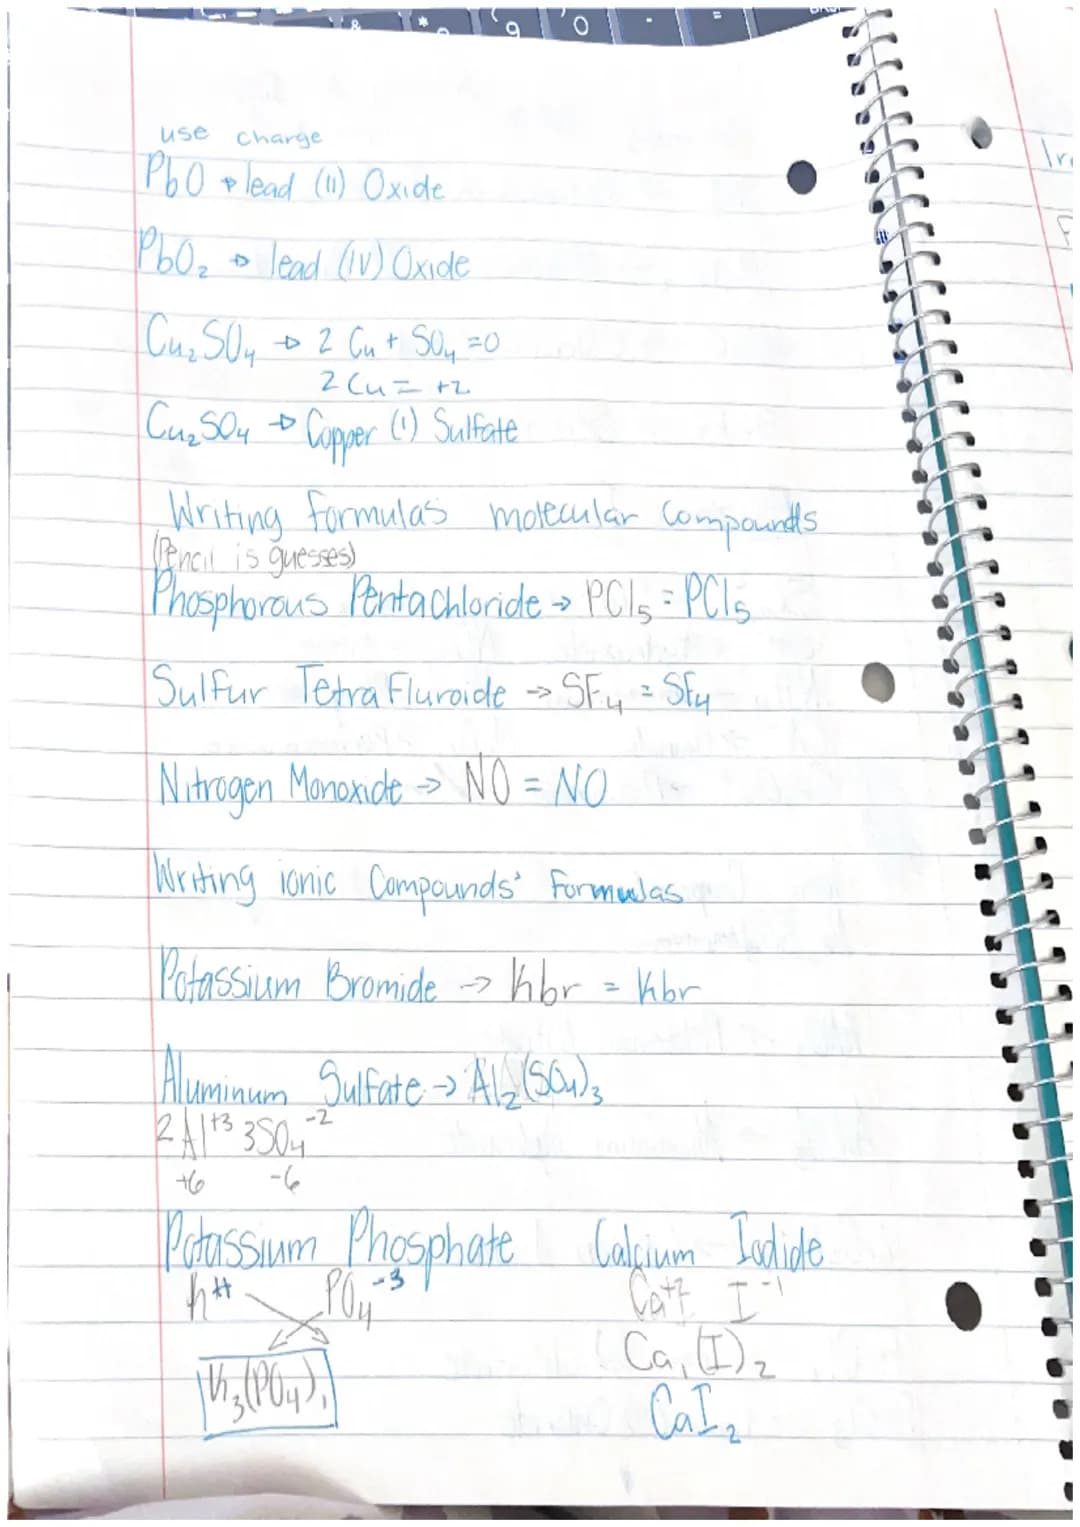 use charge
PbO → lead (II) Oxide
PbO₂ → lead (IV) Oxide
Cu₂SO₄ → 2 Cu + SO₄ = 0
2 Cu = +2
Cu₂SO₄ → Copper (I) Sulfate
Writing formulas molecular Compounds
(Pencil is guesses)
Phosphorous Pentachloride → PCl₅ = PCl₅
Sulfur Tetra Fluroide → SF₄ = SF₄
Nitrogen Monoxide → NO = NO
Writing ionic Compounds' Formulas
Potassium Bromide → Kbr = Kbr
Aluminum Sulfate → Al₂(SO₄)₃
2 Al⁺³ 3SO₄⁻²
+6 -6
Potassium Phosphate Calcium Iodide
K⁺¹ PO₄⁻³ Ca⁺² I⁻¹
K₃(PO₄)₁ Ca₁(I)₂
CaI₂